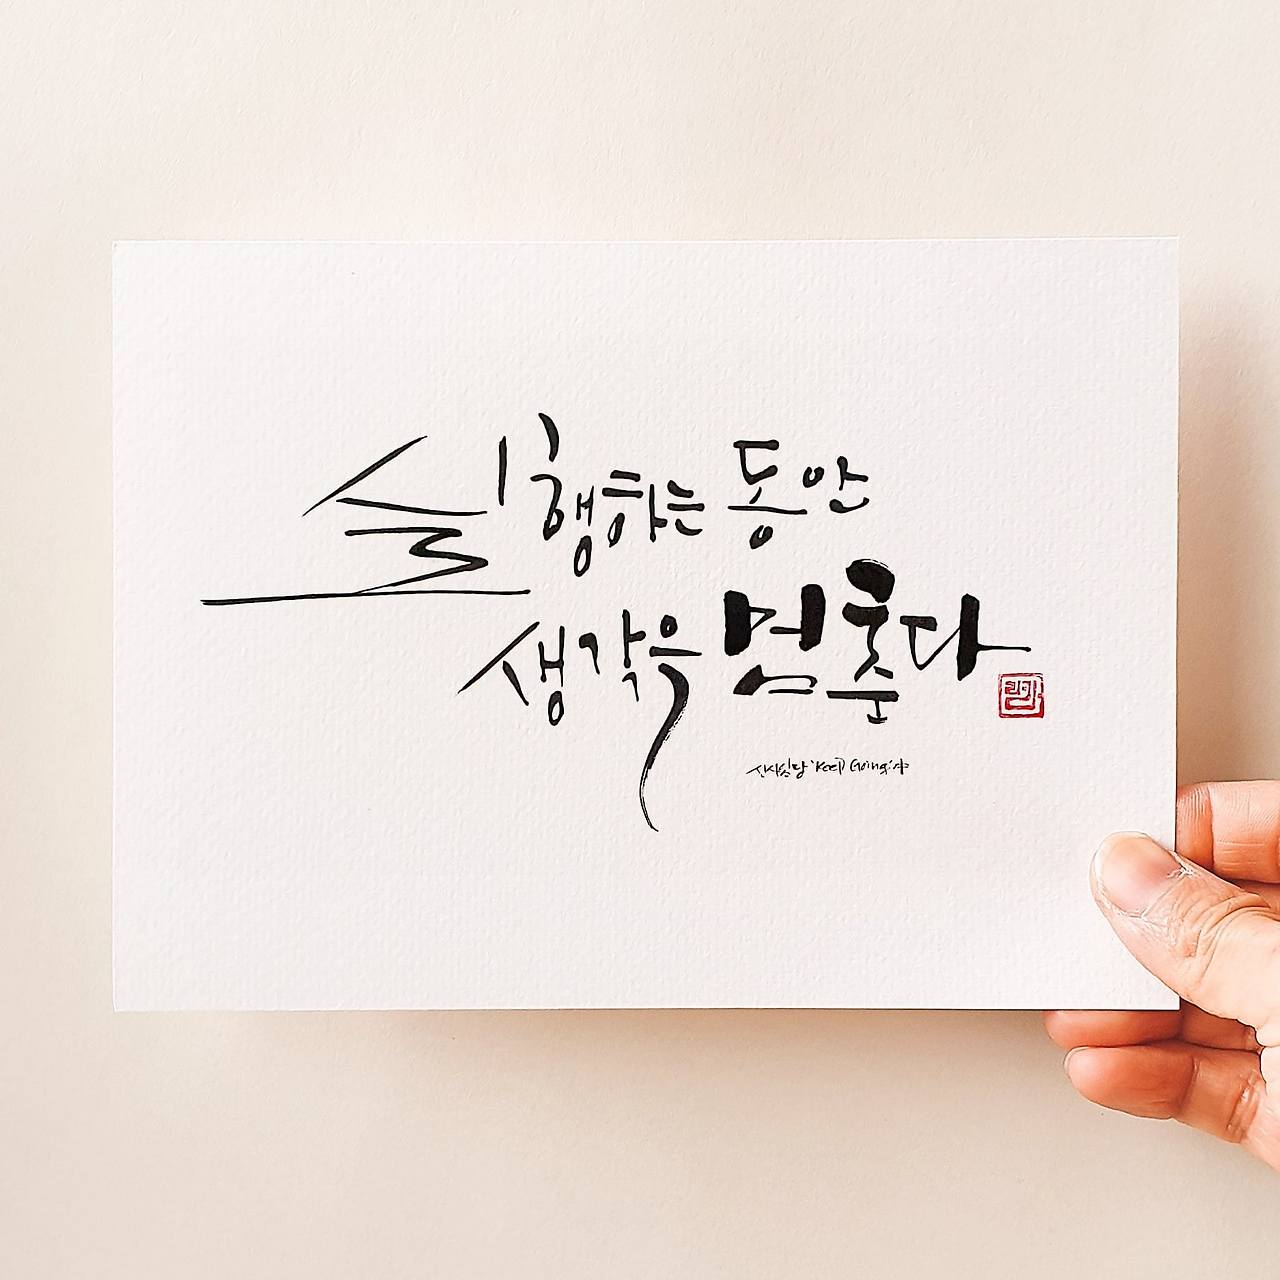 실행하는 동안
생각은 멈춘다
신사임당 'Keep Going' 中